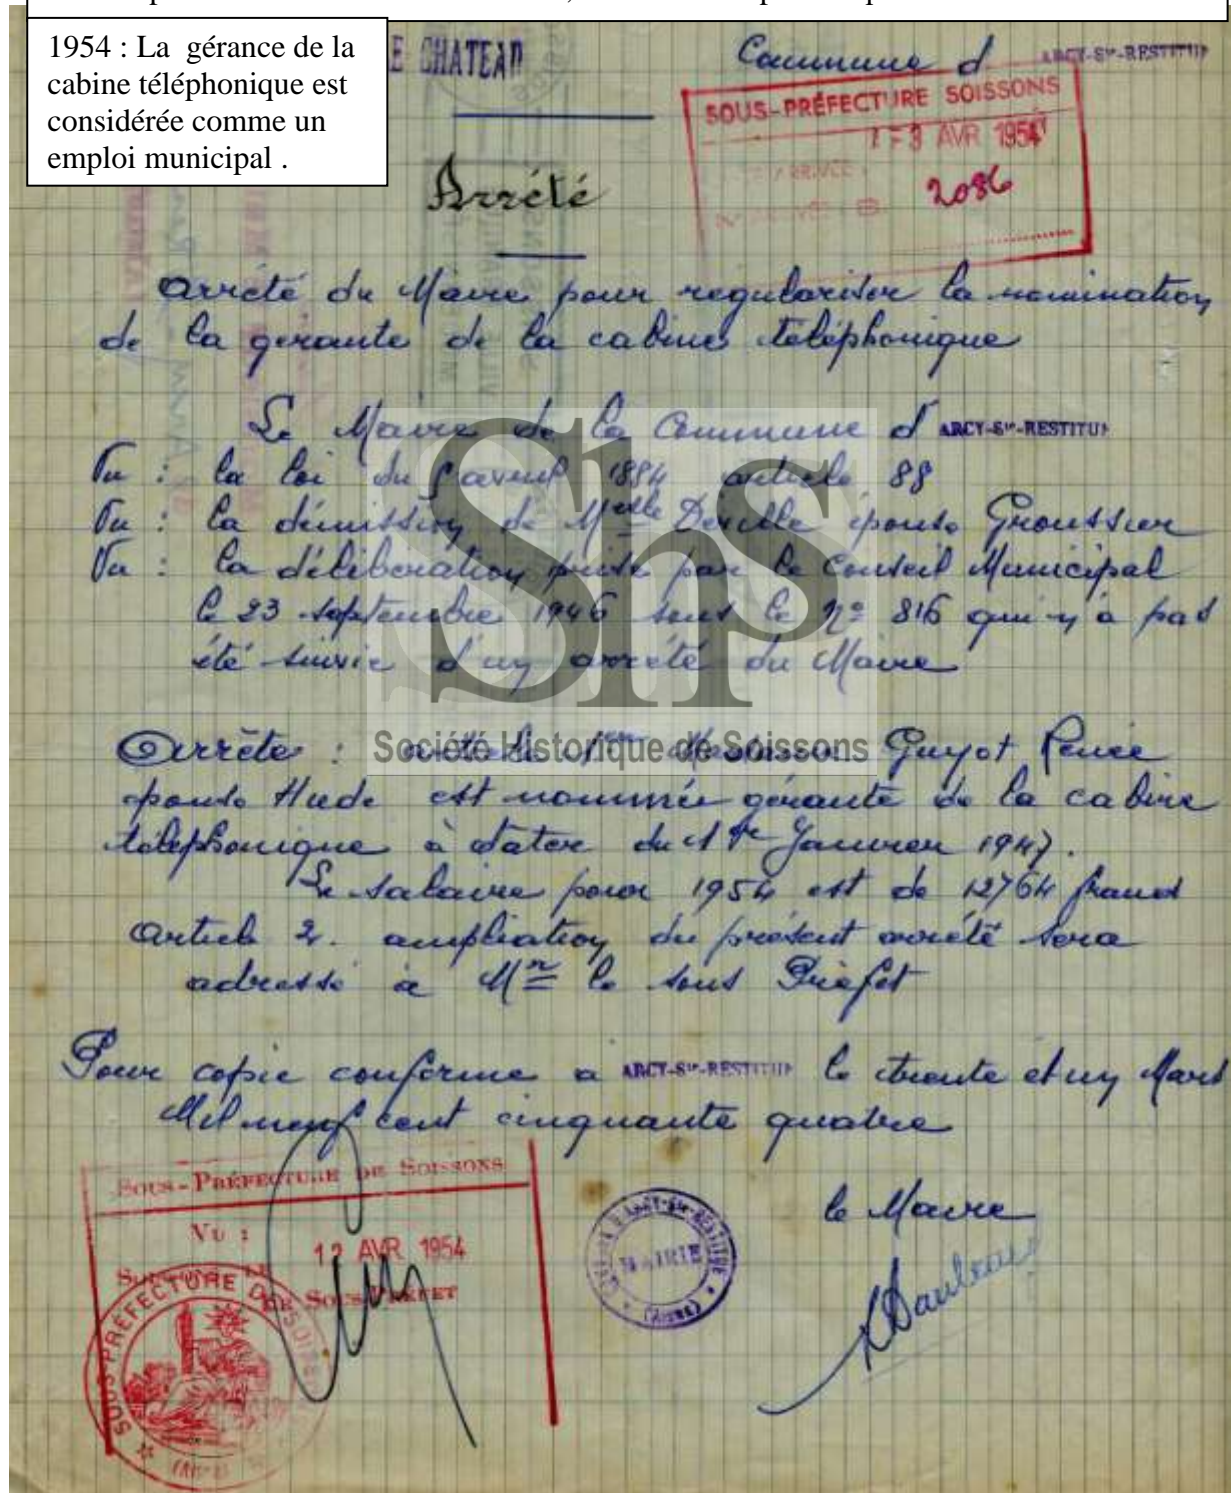 1954 : La gérance de la
cabine téléphonique est
considérée comme un
emploi municipal .
E CHATEAU
Commune d ARCY-Ste-RESTITUE
SOUS-PRÉFECTURE SOISSONS
AVR 1954
ARRIVÉE
2086
Arrêté
Arrêté du Maire pour regulariser la nomination
de la gérante de la cabine téléphonique
Le Maire de la Commune d' ARCY-Ste-RESTITUE
Vu : la loi du 5 avril 1884 article 88
Vu : la démission de Melle Deville épouse Groussier
Vu : la délibération prise par le Conseil Municipal
le 23 septembre 1946 sous le No 816 qui n'a pas
été suivie d'un arrêté du Maire
ShS
Société Historique de Soissons
Arrête : article 1er Madame Guyot Renée
épouse Hude est nommée gérante de la cabine
téléphonique à dater du 1er Janvier 1947.
Le salaire pour 1954 est de 12764 francs
Article 2. ampliation du présent arrêté sera
adressé à Mr le Sous Préfet
Pour copie conforme a ARCY-Ste-RESTITUE le trente et un Mars
Mil neuf cent cinquante quatre
SOUS-PRÉFECTURE DE SOISSONS
VU :
12 AVR 1954
LE SOUS-PRÉFET
SOUS-PRÉFECTURE DE SOISSONS
(AISNE)
MAIRIE D'ARCY-Ste-RESTITUE
(AISNE)
le Maire